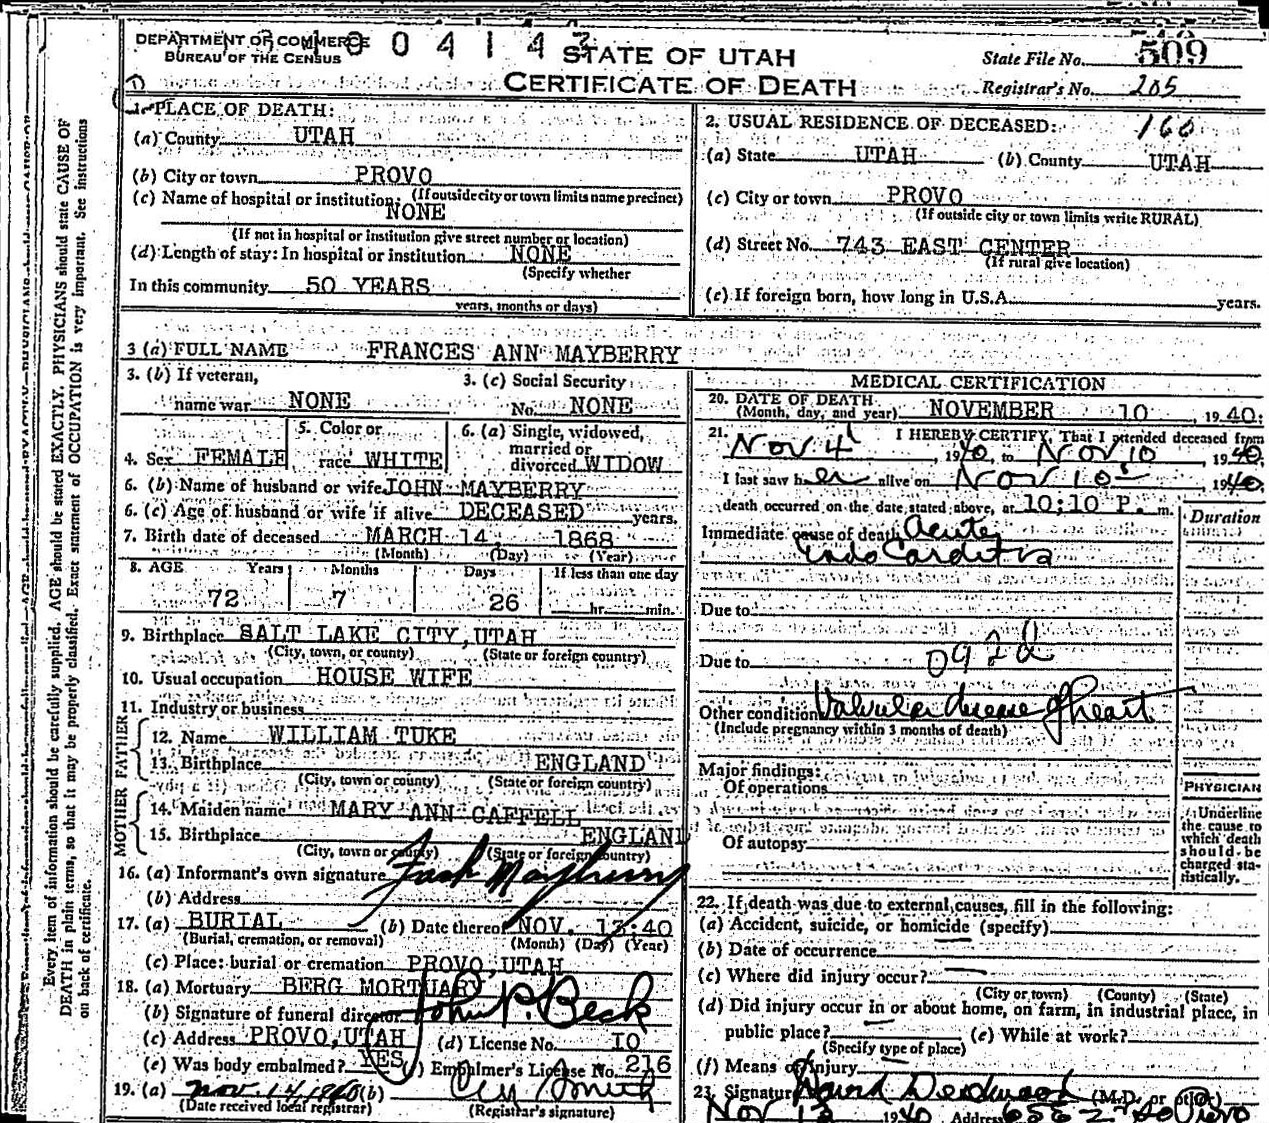 DEPARTMENT OF COMMERCE
BUREAU OF THE CENSUS
004142
STATE OF UTAH
CERTIFICATE OF DEATH
State File No. 509
Registrar's No. 205
1. PLACE OF DEATH:
(a) County UTAH
(b) City or town PROVO
(If outside city or town limits name precinct)
(c) Name of hospital or institution:
NONE
(If not in hospital or institution give street number or location)
(d) Length of stay: In hospital or institution NONE
(Specify whether
In this community 50 YEARS
years, months or days)
2. USUAL RESIDENCE OF DECEASED: 160
(a) State UTAH (b) County UTAH
(c) City or town PROVO
(If outside city or town limits write RURAL)
(d) Street No. 743 EAST CENTER
(If rural give location)
(e) If foreign born, how long in U.S.A. years.
3 (a) FULL NAME FRANCES ANN MAYBERRY
3. (b) If veteran,
name war NONE
3. (c) Social Security
No. NONE
4. Sex FEMALE
5. Color or
race WHITE
6. (a) Single, widowed,
married or
divorced WIDOW
6. (b) Name of husband or wife JOHN MAYBERRY
6. (c) Age of husband or wife if alive DECEASED years.
7. Birth date of deceased MARCH 14, 1868
(Month) (Day) (Year)
8. AGE Years Months Days If less than one day
72 7 26 hr. min.
9. Birthplace SALT LAKE CITY, UTAH
(City, town, or county) (State or foreign country)
10. Usual occupation HOUSE WIFE
11. Industry or business
FATHER
12. Name WILLIAM TUKE
13. Birthplace ENGLAND
(City, town or county) (State or foreign country)
MOTHER
14. Maiden name MARY ANN CAFFELL
15. Birthplace ENGLAND
(City, town or county) (State or foreign country)
16. (a) Informant's own signature Jack Mayberry
(b) Address
17. (a) BURIAL (b) Date thereof NOV. 13, 40
(Burial, cremation, or removal) (Month) (Day) (Year)
(c) Place: burial or cremation PROVO, UTAH
18. (a) Mortuary BERG MORTUARY
(b) Signature of funeral director John P. Beck
(c) Address PROVO, UTAH (d) License No. 10
(e) Was body embalmed? YES (f) Embalmer's License No. 216
19. (a) Nov. 14, 1940 (b) Smith
(Date received local registrar) (Registrar's signature)
MEDICAL CERTIFICATION
20. DATE OF DEATH
(Month, day, and year) NOVEMBER 10 1940.
21. I HEREBY CERTIFY, That I attended deceased from
Nov 4, 1940, to Nov 10, 1940.
I last saw her alive on Nov 10 1940.
death occurred on the date stated above, at 10:10 P. m.
Duration
Immediate cause of death Acute
Endo Carditis
Due to
Due to 092d
Other condition Valvular disease of heart
(Include pregnancy within 3 months of death)
Major findings:
Of operations
Of autopsy
PHYSICIAN
Underline
the cause to
which death
should be
charged sta-
tistically.
22. If death was due to external causes, fill in the following:
(a) Accident, suicide, or homicide (specify)
(b) Date of occurrence
(c) Where did injury occur?
(City or town) (County) (State)
(d) Did injury occur in or about home, on farm, in industrial place, in
public place? (e) While at work?
(Specify type of place)
(f) Means of injury
23. Signature (M.D. or other)
Nov 13 1940 Address
Every item of information should be carefully supplied. AGE should be stated EXACTLY. PHYSICIANS should state CAUSE OF
DEATH in plain terms, so that it may be properly classified. Exact statement of OCCUPATION is very important. See instructions
on back of certificate.